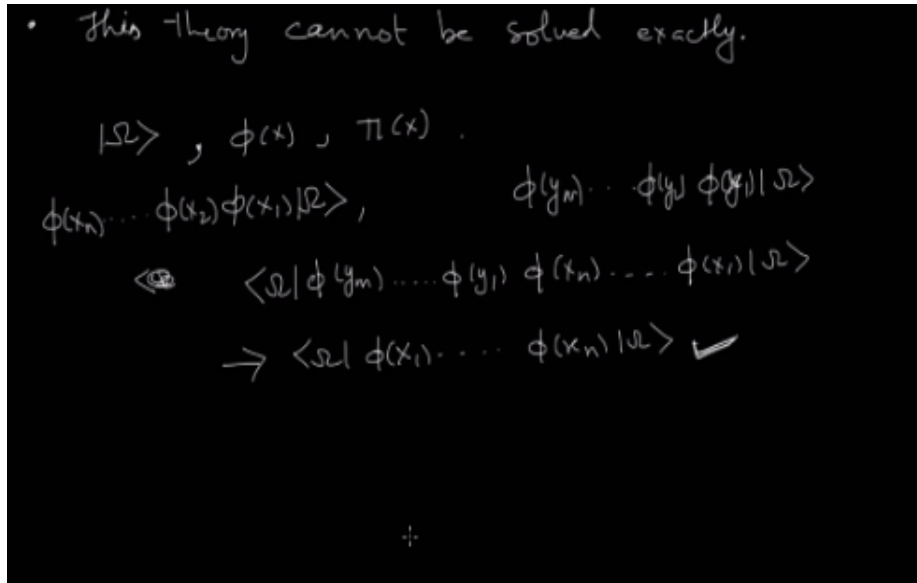 • This theory cannot be solved exactly.
|Ω⟩ , ϕ(x) , π(x) .
ϕ(xₙ)....ϕ(x₂)ϕ(x₁)|Ω⟩, ϕ(yₘ)... ϕ(y₂) ϕ(y₁)|Ω⟩
⟨Ω|ϕ(yₘ).....ϕ(y₁) ϕ(xₙ)....ϕ(x₁)|Ω⟩
→ ⟨Ω| ϕ(x₁)..... ϕ(xₙ)|Ω⟩ ✓